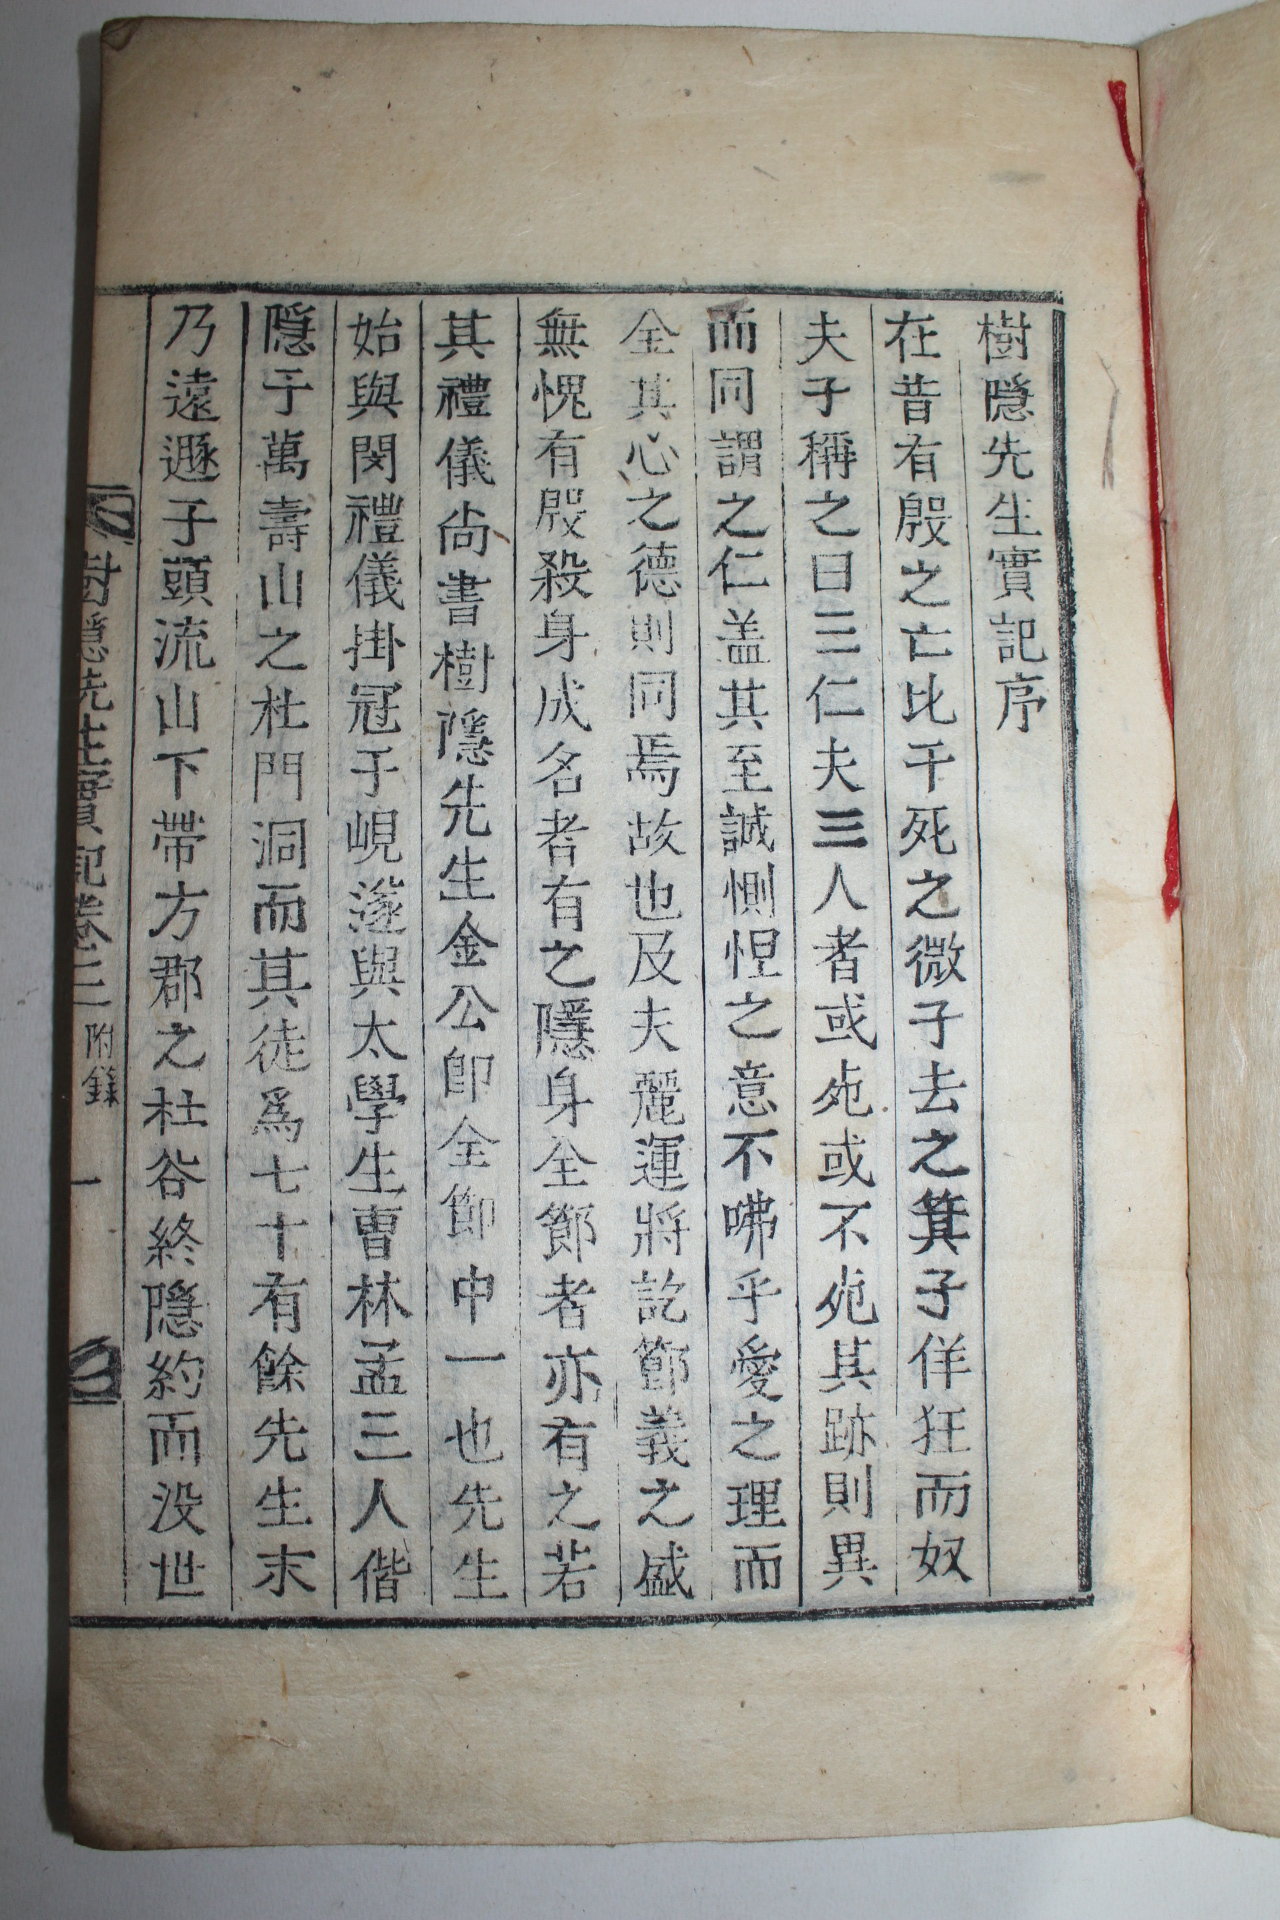 樹隱先生實記序
在昔有殷之亡比干死之微子去之箕子佯狂而奴
夫子稱之曰三仁夫三人者或死或不死其跡則異
而同謂之仁盖其至誠惻怛之意不咈乎愛之理而
全其心之德則同焉故也及夫麗運將訖節義之盛
無愧有殷殺身成名者有之隱身全節者亦有之若
其禮儀尙書樹隱先生金公卽全節中一也先生
始與閔禮儀掛冠于峴遂與太學生曺林孟三人偕
隱于萬壽山之杜門洞而其徒爲七十有餘先生末
乃遠遯于頭流山下帶方郡之杜谷終隱約而没世
樹隱先生實記卷三 附錄 一